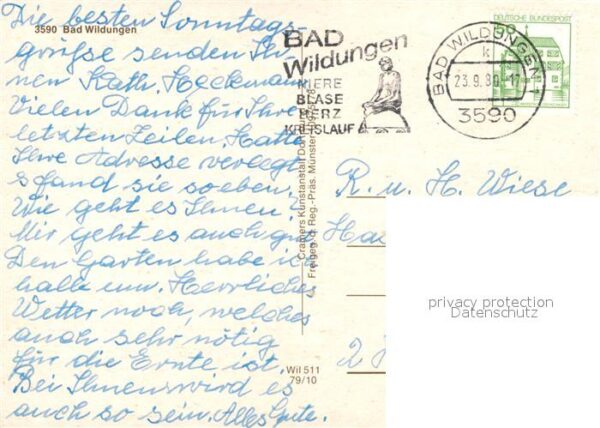 Die besten Sonntags-
3590 Bad Wildungen
grüße senden Ih-
nen Kath. Heckmann
Vielen Dank für Ihre
letzten Zeilen. Hatte
Ihre Adresse verlegt
fand sie soeben.
Wie geht es Ihnen?
Mir geht es auch gut
Den Garten habe ich
halb um. Herrliches
Wetter noch, welches
auch sehr nötig
für die Ernte ist.
Bei Ihnen wird es
auch so sein. Alles Gute.
BAD
Wildungen
NIERE
BLASE
HERZ
KREISLAUF
BAD WILDUNGEN 1
k
23.9.80-17
3590
DEUTSCHE BUNDESPOST
Cramers Kunstanstalt
Freigeg. d. Reg.-Präs. Münster
Wil 511
79/10
R. u. H. Wiese
Ha
2
privacy protection
Datenschutz